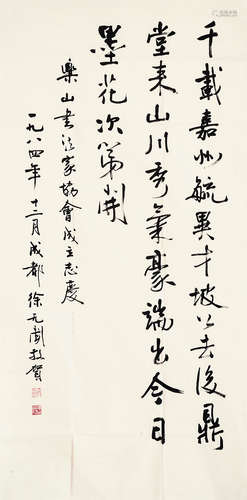 千載嘉州毓異才坡公去後鼎
堂来山川秀氣豪端出今日
墨花次第開
樂山書法家協會成立志慶
一九八四年十二月成都徐无聞敬賀